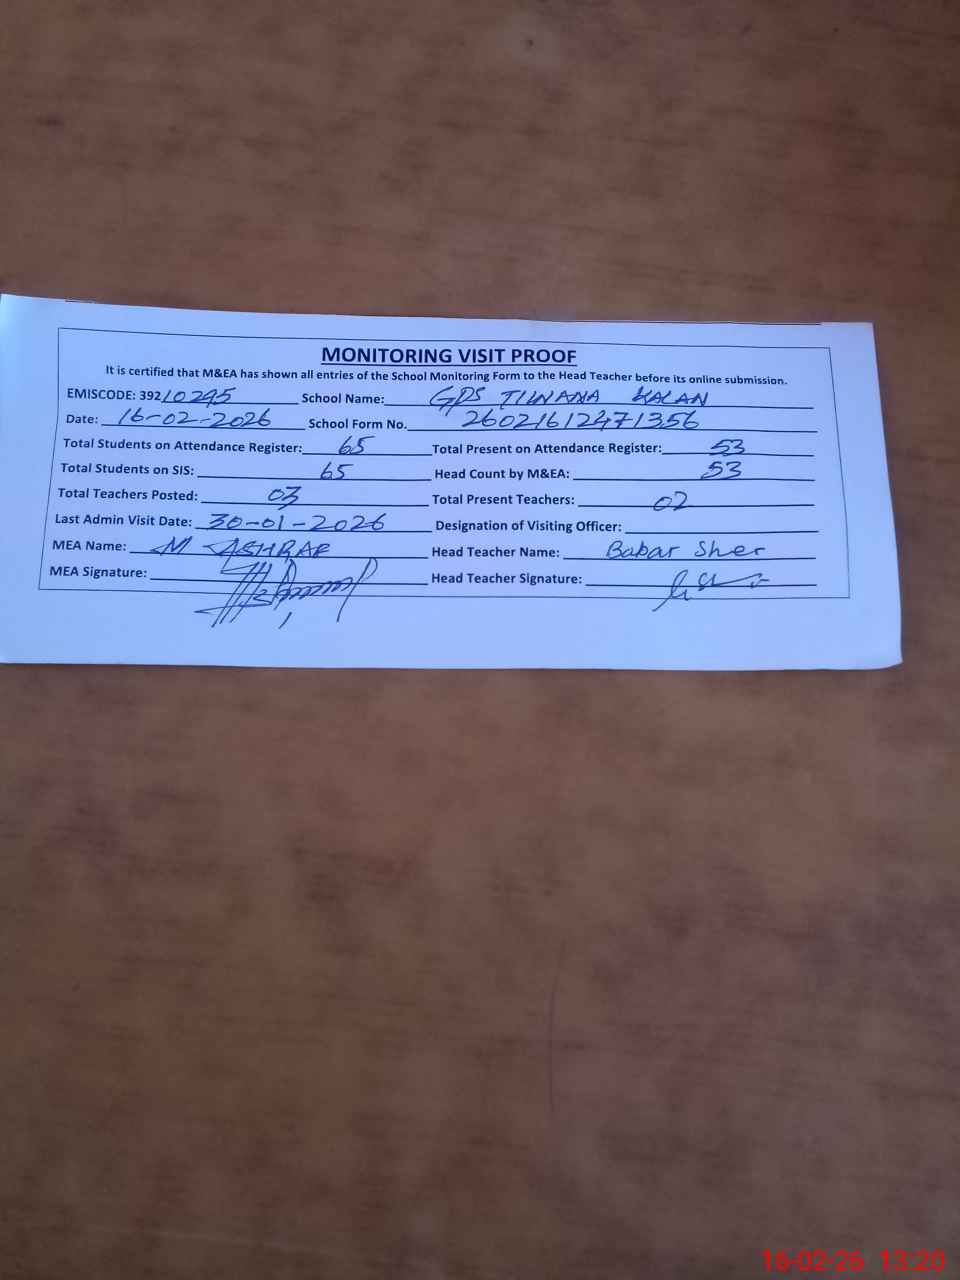 MONITORING VISIT PROOF
It is certified that M&EA has shown all entries of the School Monitoring Form to the Head Teacher before its online submission.
EMISCODE: 39210295 School Name: GPS TIWANA KALAN
Date: 16-02-2026 School Form No. 26021612471356
Total Students on Attendance Register: 65 Total Present on Attendance Register: 53
Total Students on SIS: 65 Head Count by M&EA: 53
Total Teachers Posted: 03 Total Present Teachers: 02
Last Admin Visit Date: 30-01-2026 Designation of Visiting Officer:
MEA Name: M ASHRAF Head Teacher Name: Babar Sher
MEA Signature: Head Teacher Signature:
16-02-26 13:20